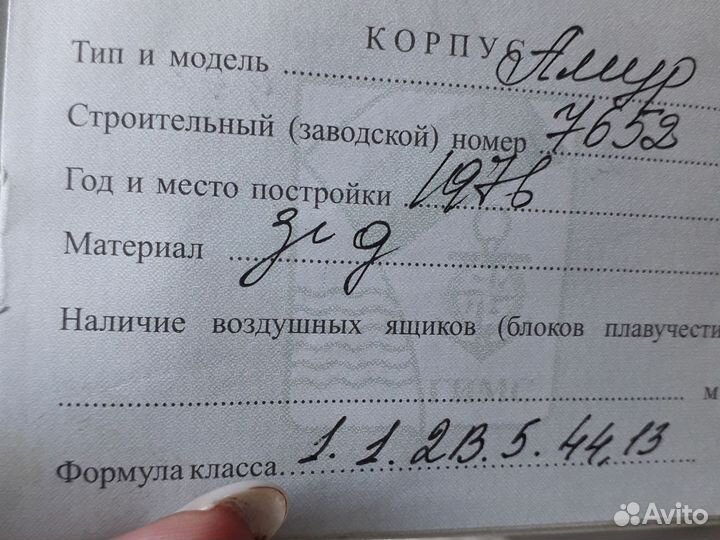 КОРПУС
Тип и модель Амур
Строительный (заводской) номер 7652
Год и место постройки 1976
Материал
Наличие воздушных ящиков (блоков плавучести
м
Формула класса 1.1.2В.5.44,13
ГИМС
Avito